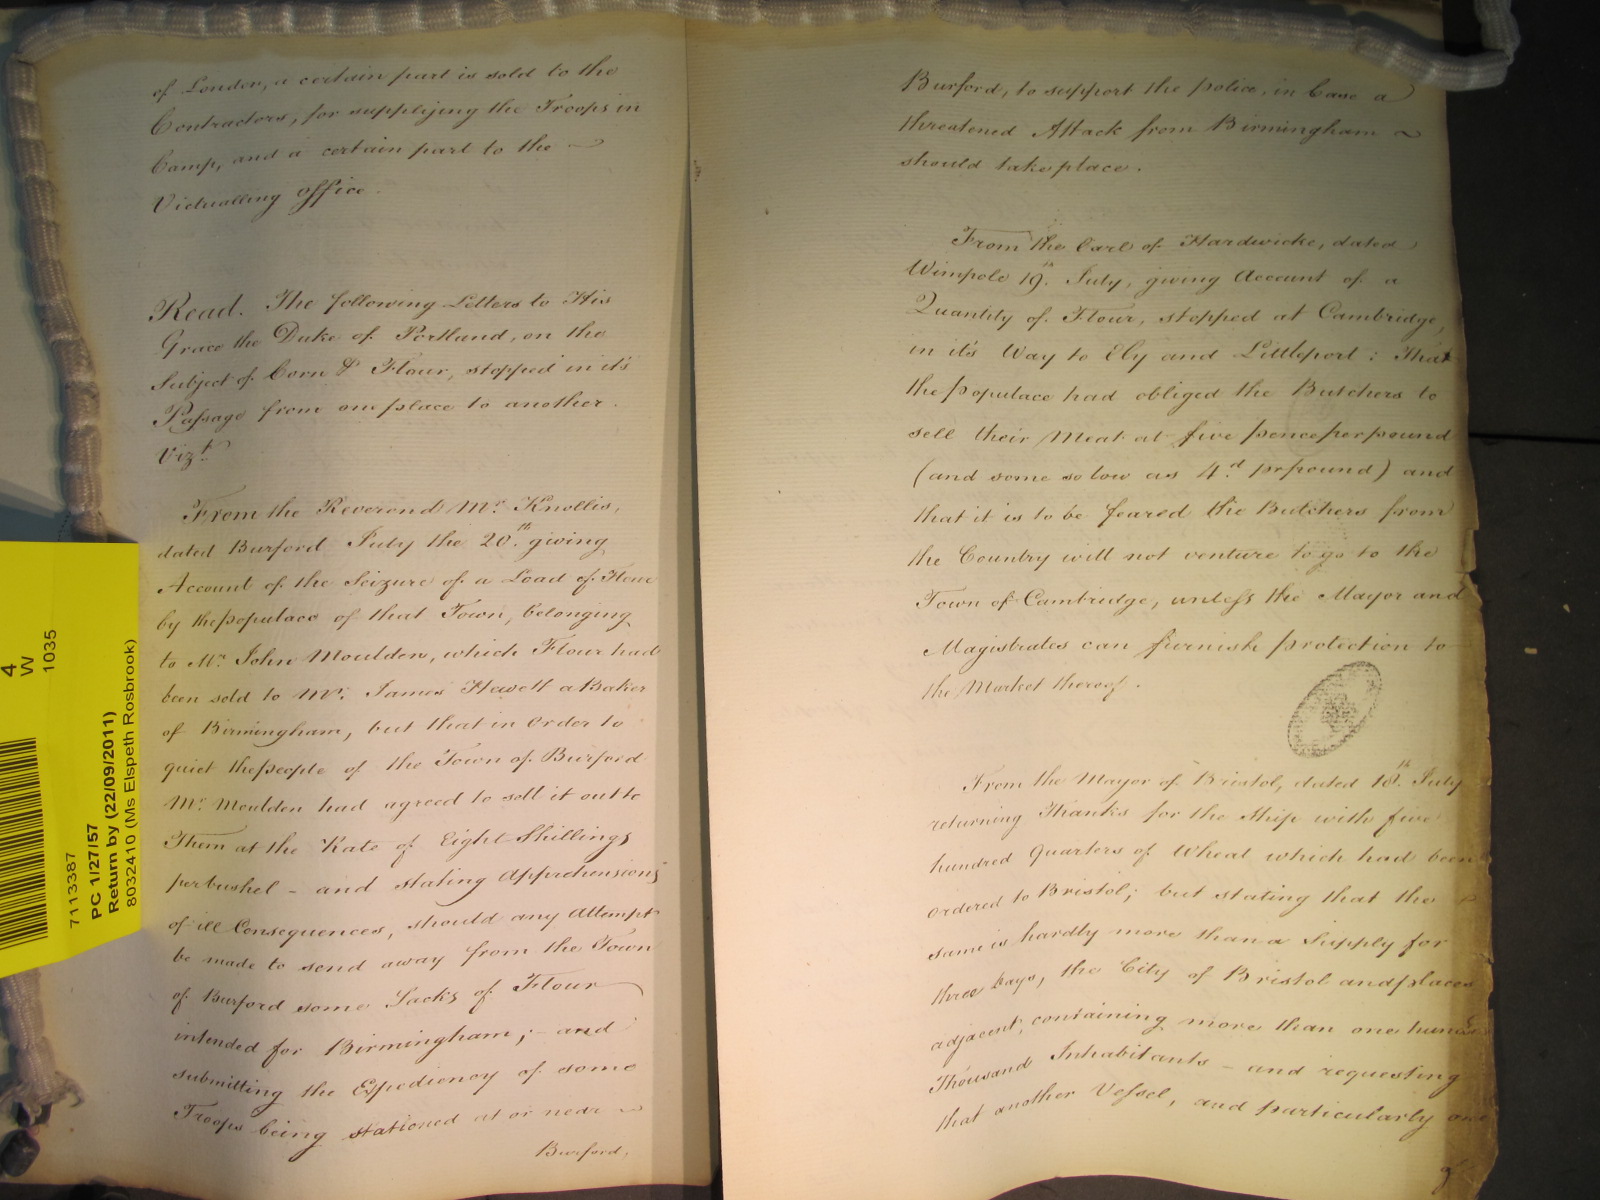 of London, a certain part is sold to the
Contractors, for supplijing the Troops in
Camp, and a certain part to the
Victualling Office.
Read. The following Letters to His
Grace the Duke of Portland, on the
Subject of Corn & Flour, stopped in it's
Passage from one place to another.
Vizt.
From the Reverend Mr. Knollis,
dated Burford July the 20th. giving
Account of the Seizure of a Load of Flour
by the populace of that Town, belonging
to Mr. John Moulden, which Flour had
been sold to Mr. James Hewett a Baker
of Birmingham, but that in Order to
quiet the people of the Town of Burford
Mr. Moulden had agreed to sell it out to
Them at the Rate of Eight Shillings
per bushel - and stating Apprehensions
of ill Consequences, should any Attempt
be made to send away from the Town
of Burford some Sacks of Flour
intended for Birmingham; - and
submitting the Expediency of some
Troops being stationed at or near
Burford,
Burford, to support the police, in Case a
threatened Attack from Birmingham
should take place.
From the Earl of Hardwicke, dated
Wimpole 19th. July, giving Account of a
Quantity of Flour, stopped at Cambridge,
in it's Way to Ely and Littleport: That
the populace had obliged the Butchers to
sell their Meat at five pence per pound
(and some so low as 4d. pr pound) and
that it is to be feared the Butchers from
the Country will not venture to go to the
Town of Cambridge, unless the Mayor and
Magistrates can furnish protection to
the Market thereof.
From the Mayor of Bristol, dated 18th. July
returning Thanks for the Ship with five
hundred Quarters of Wheat which had been
Ordered to Bristol; but stating that the
same is hardly more than a Supply for
three Days, the City of Bristol and places
adjacent, containing more than one hund
Thousand Inhabitants - and requesting
that another Vessel, and particularly one
4
W
1035
7113387
PC 1/27/57
Return by (22/09/2011)
8032410 (Ms Elspeth Rosbrook)